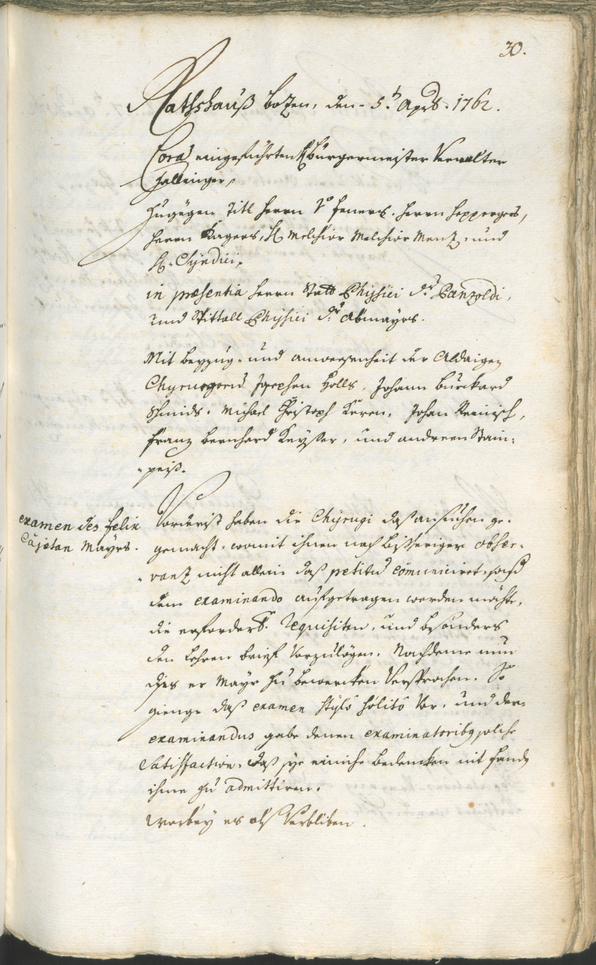 30.
Rathshauß Bozen, den 5t April 1762.
Corā eingeführten H Bürgermeister Verwalter
Gallinger,
Zugegen Titl Herrn v: Feners. Herrn Hepperger,
Herrn Kagers, H: Melchior Melchior Menz und
H: Syndici,
in præsentia Herrn Statt Physici Dr Panzoldi,
und Spittall Physici Dr Abmayrs.
Mit beyzug- und anwesenheit der Aldaigen
Chyrurgorū Josephen Holls, Johann Burckard
Schmids, Michael Christoph Keren, Johan Reinisch,
Franz Bernhard Keyser, und Andreen Stain-
-peiß.
examen des Felix
Cajetan Mayrs.
Vorderist haben die Chyrugi das ansuchen ge-
gemacht, womit ihnen nach bisheriger obser-
vanz nicht allein das petitū comuniciret, sond
dem examinando aufgetragen werden möchte,
die erforderl. requisiten, und besonders
den Lehren brief vorzulögen. Nachdeme nun
dies er Mayr zu bewercken versprochen. So
gienge das examen stylo solito vor, und der
examinandus gabe denen examinatoribq solche
Satisfaction, daß sye einiche bedencken nit fanden
ihme zu admittiren.
Worbey es also verbliben.